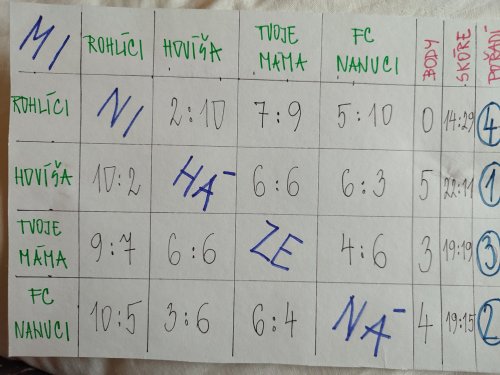 MI ROHLÍCI HOVÍŠA TVOJE MÁMA FC NANUCI BODY SKÓRE POŘADÍ
ROHLÍCI NI 2:10 7:9 5:10 0 14:29 4
HOVÍŠA 10:2 HÁ- 6:6 6:3 5 22:11 1
TVOJE MÁMA 9:7 6:6 ZE 4:6 3 19:19 3
FC NANUCI 10:5 3:6 6:4 NÁ 4 19:15 2